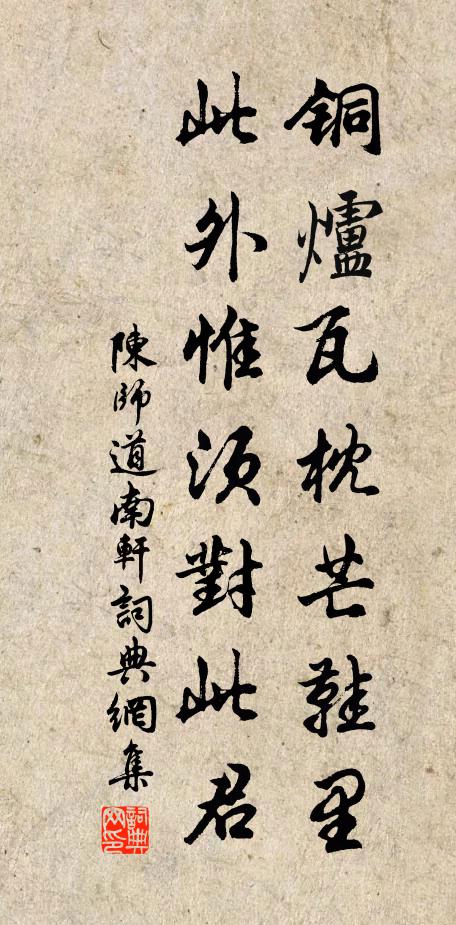 銅爐瓦枕芒鞋里
此外惟須對此君
陳師道南軒詞典網集
詞典網印